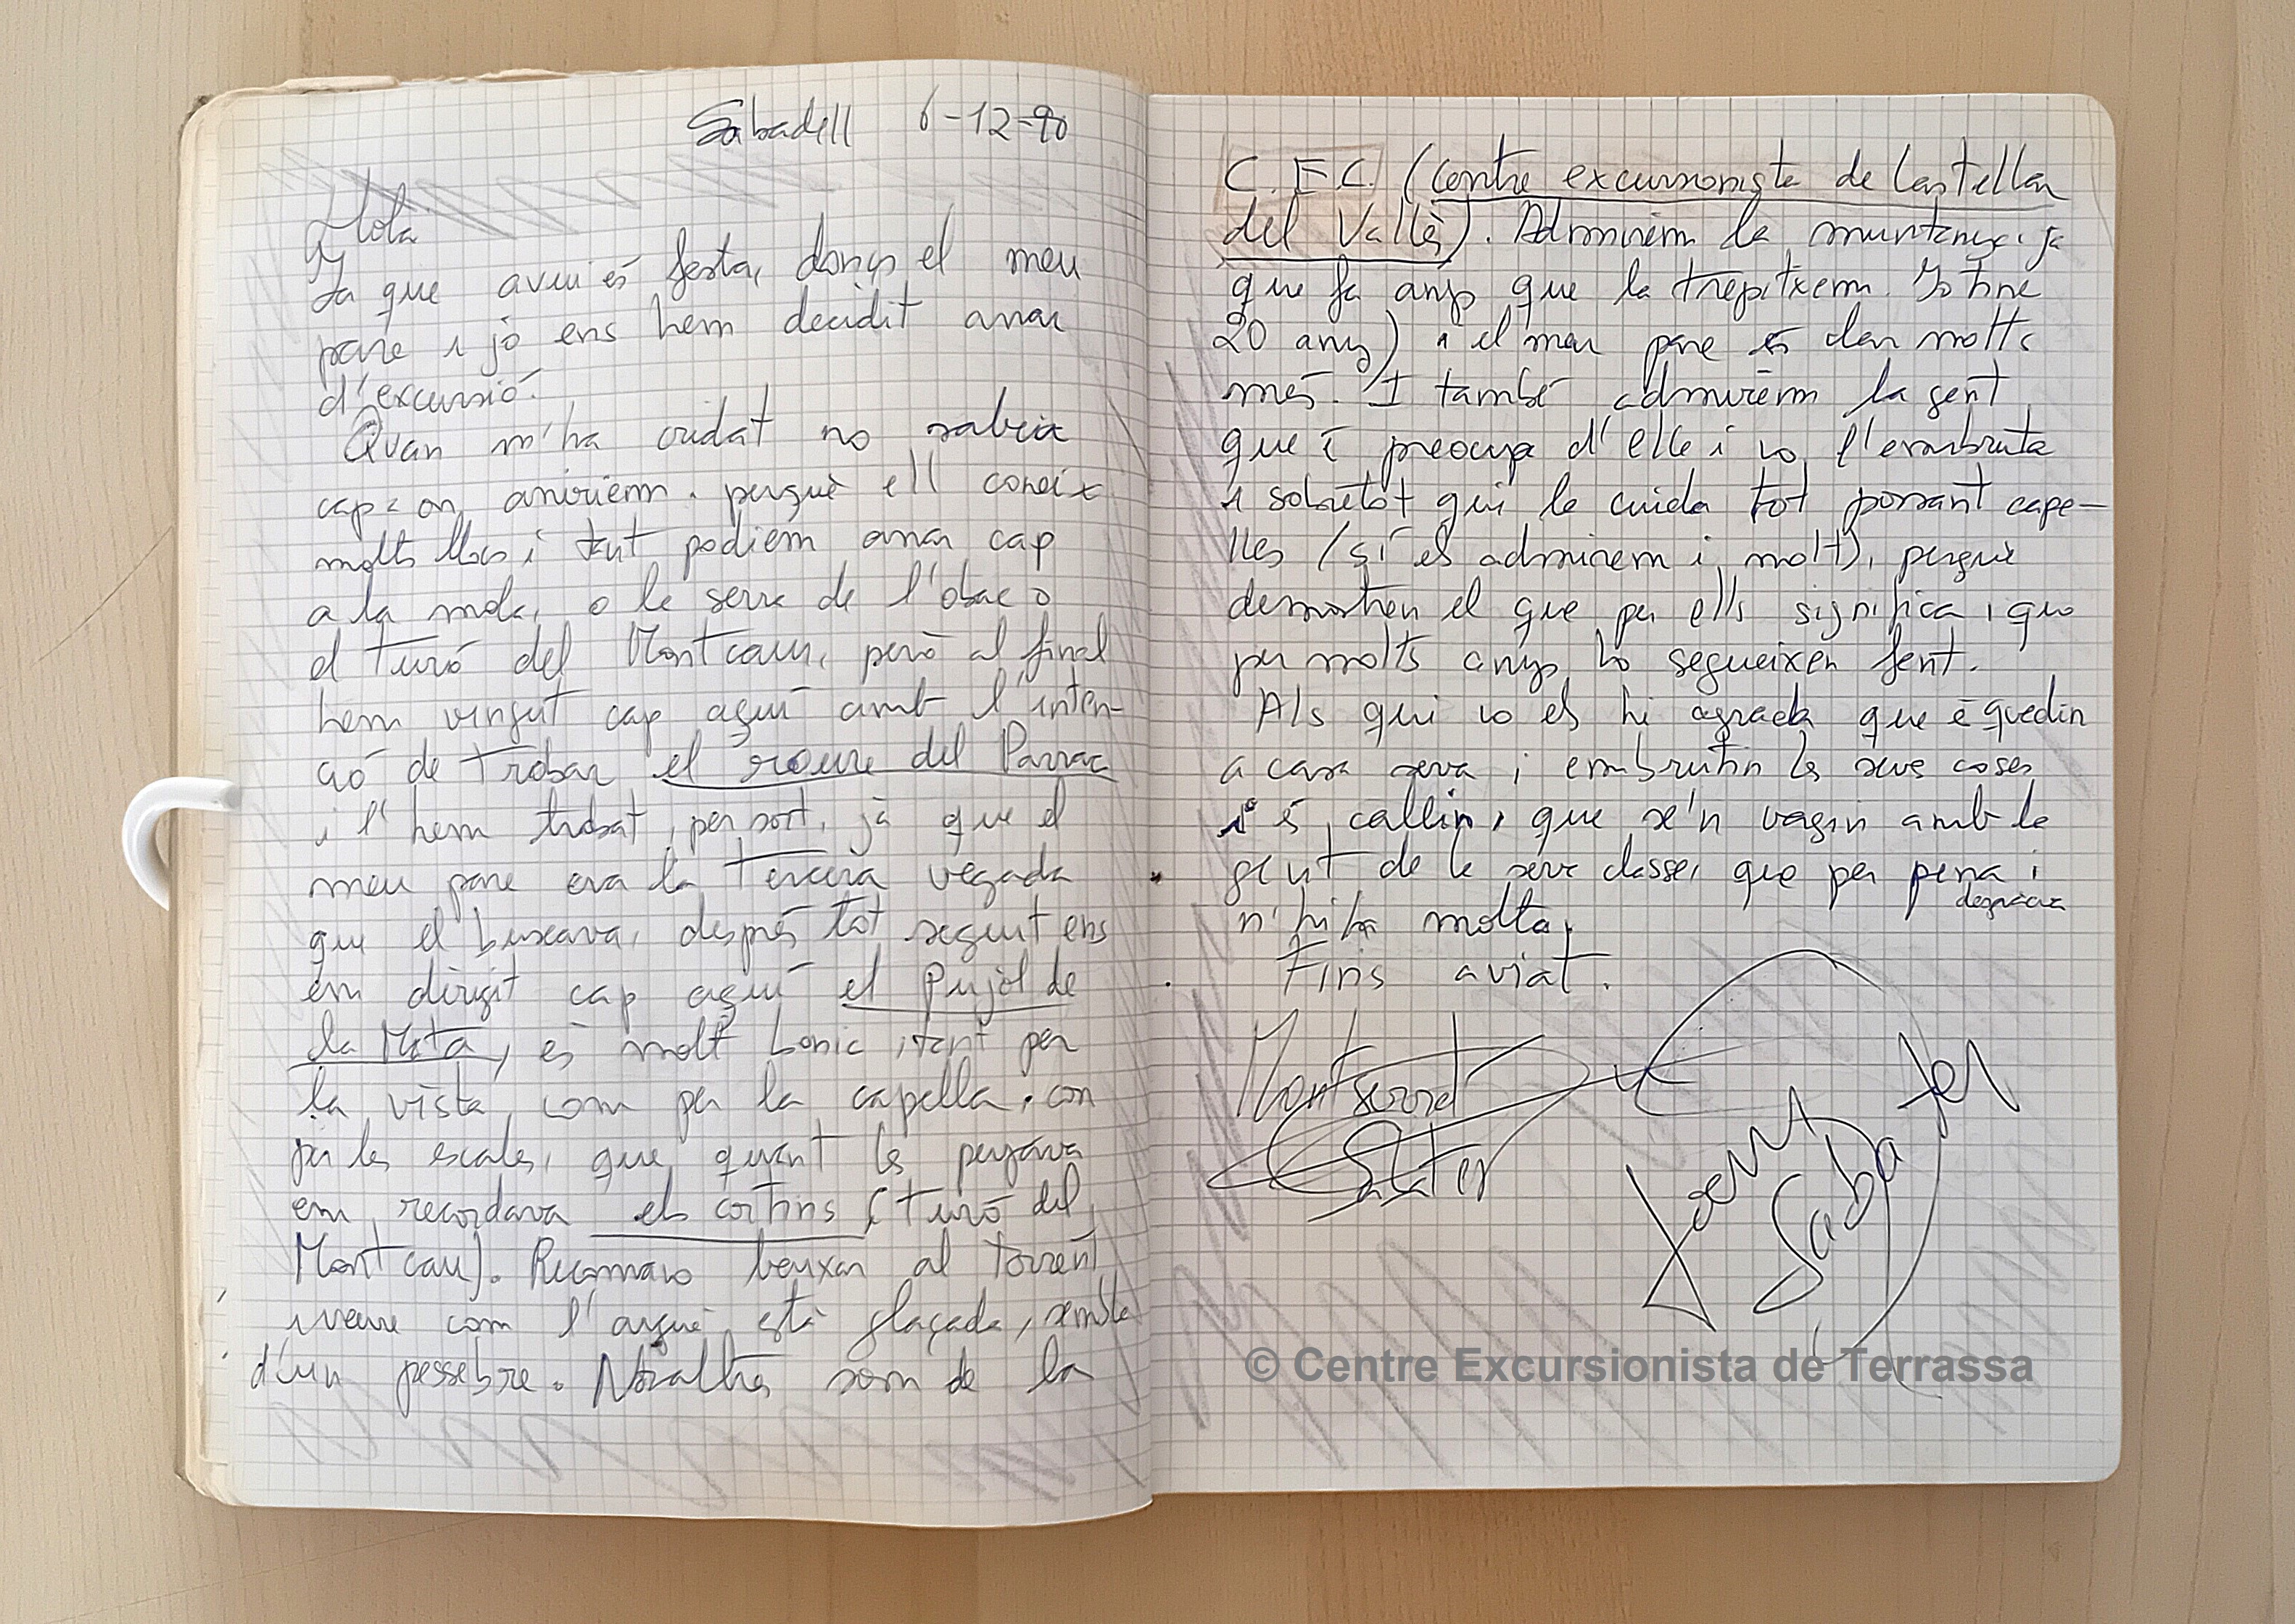 Sabadell 6-12-90
Hola
Ja que avui és festa, donçs el meu
pare i jo ens hem decidit anar
d'excursió.
Quan m'ha cridat no sabia
cap a on aniriem. perquè ell coneix
molts llocs i tant podiem anar cap
a la mola, o la serra de l'obac o
el turó del Montcau, però al final
hem vingut cap aquí amb l'inten-
ció de trobar el roure del Parrac
i l'hem trobat, per sort, jà que el
meu pare era la tercera vegada
que el buscava, després tot seguit ens
em dirigit cap aquí el Pujol de
la Mata, és molt bonic, tant per
la vista, com per la capella, com
per les escales, que quant les pujava
em recordava els cortins (turó del
Montcau). Recomano baixar al torrent
i veure com l'aigua està glaçada, sembla
d'un pessebre. Nosaltres som de la
C.E.C. (centre excursioniste de Castellar
del Vallès). Admirem la muntanya, ja
que fa anys que la trepitxem. Jo tinc
20 anys) i el meu pare és clar molts
més. I també admirem la gent
que é preocupa d'ella i no l'embruta
i sobretot qui la cuida tot posant cape-
lles (sí els admirem i molt), perquè
demostren el que per ells significa, i que
per molts anys ho segueixen fent.
Als qui no els hi agrada que é quedin
a casa seva i embrutin les seves coses
i és callin, que se'n vagin amb la
gent de la seva classe, que per pena i
desgràcia
n'hi ha molta.
Fins aviat.
Montserrat
Sabater
Joan
Sabater
© Centre Excursionista de Terrassa